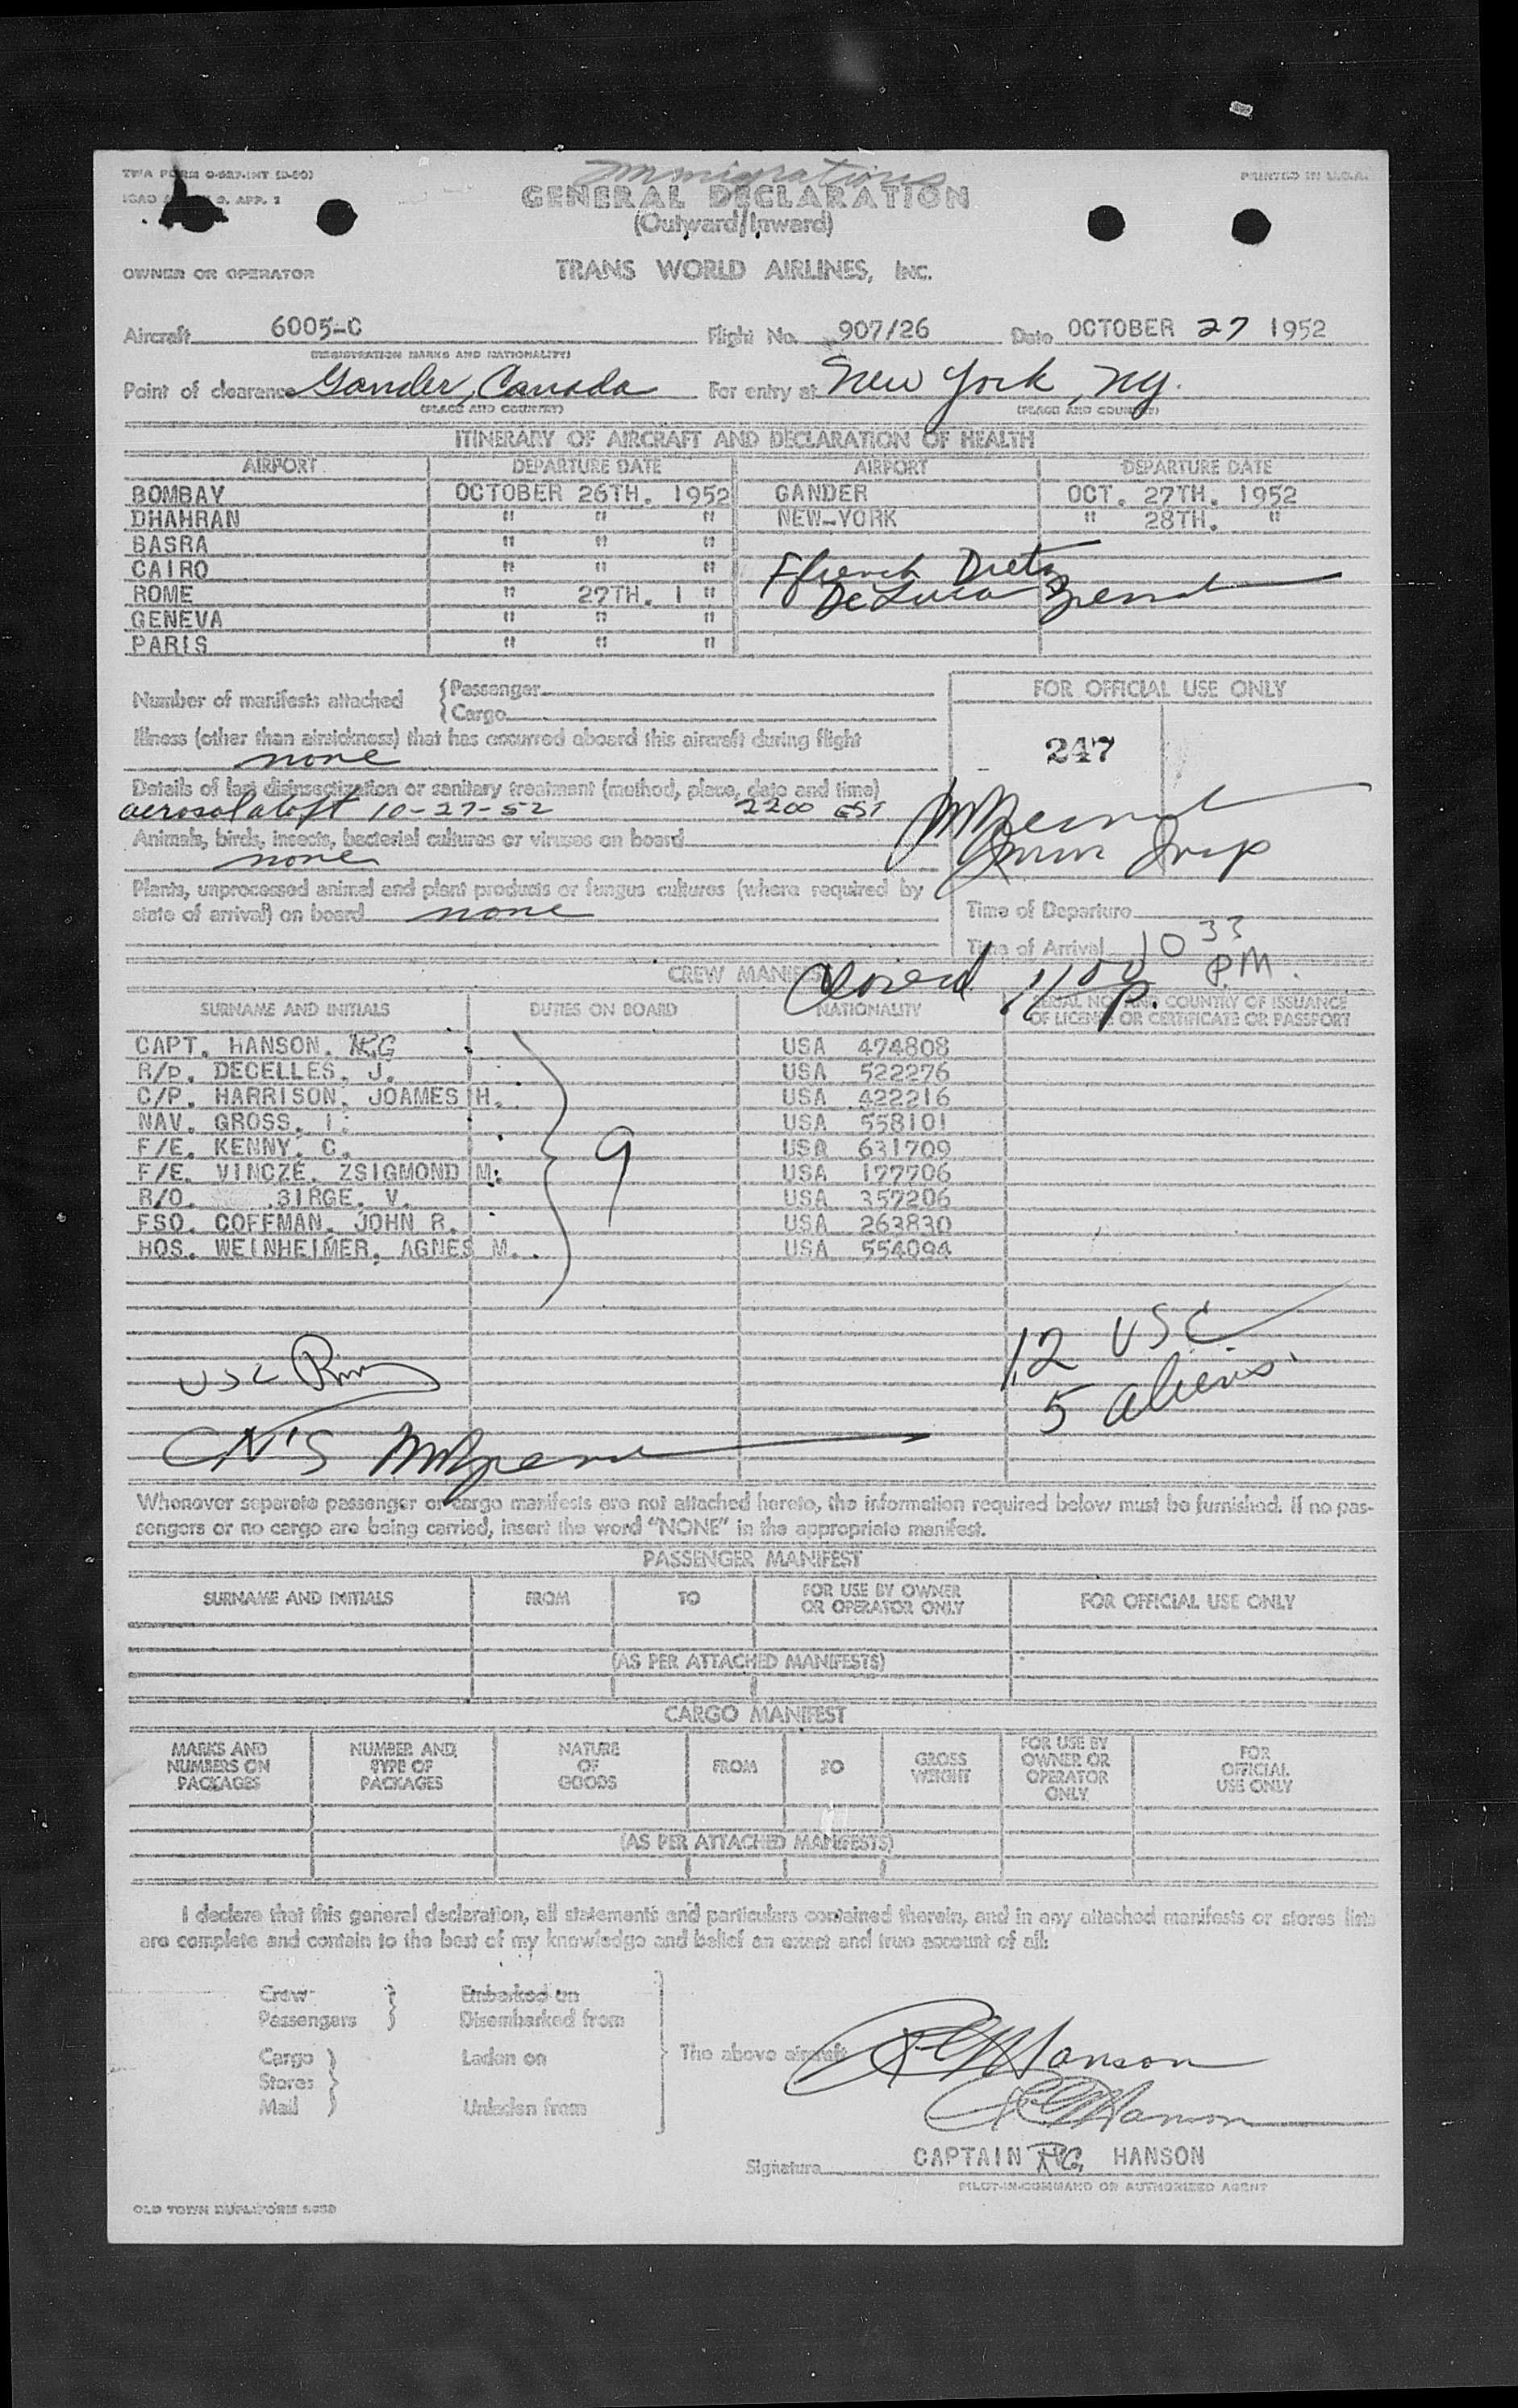 TWA FORM O-527-INT (2-50)
PRINTED IN U.S.A.
Immigrations
GENERAL DECLARATION
(Outward/Inward)
OWNER OR OPERATOR TRANS WORLD AIRLINES, INC.
Aircraft 6005-C Flight No. 907/26 Date OCTOBER 27 1952
(REGISTRATION MARKS AND NATIONALITY)
Point of clearance Gander, Canada For entry at New York, NY.
(PLACE AND COUNTRY) (PLACE AND COUNTRY)
ITINERARY OF AIRCRAFT AND DECLARATION OF HEALTH
AIRPORT DEPARTURE DATE AIRPORT DEPARTURE DATE
BOMBAY OCTOBER 26TH. 1952 GANDER OCT. 27TH. 1952
DHAHRAN " " " NEW-YORK " 28TH. "
BASRA " " "
CAIRO " " "
ROME " 27TH. 1 " De Luca
GENEVA " " "
PARIS " " "
Number of manifests attached {Passenger
{Cargo
FOR OFFICIAL USE ONLY
Illness (other than airsickness) that has occurred aboard this aircraft during flight
none
247
Details of last disinsectization or sanitary treatment (method, place, date and time)
aerosol aloft 10-27-52 2200 EST
Animals, birds, insects, bacterial cultures or viruses on board
none
Imm Insp
Plants, unprocessed animal and plant products or fungus cultures (where required by
state of arrival) on board none
Time of Departure
Time of Arrival 10 33 PM.
Closed 11 00 p.
CREW MANIFEST
SURNAME AND INITIALS DUTIES ON BOARD NATIONALITY SERIAL NO. AND COUNTRY OF ISSUANCE
OF LICENSE OR CERTIFICATE OR PASSPORT
CAPT. HANSON. RG USA 474808
R/P. DECELLES. J. USA 522276
C/P. HARRISON. JOAMES H. USA 422216
NAV. GROSS. I. USA 558101
F/E. KENNY. C. 9 USA 631709
F/E. VINCZE. ZSIGMOND M. USA 177706
R/O. SIRGE. V. USA 357206
FSO. COFFMAN. JOHN R. USA 263830
HOS. WEINHEIMER. AGNES M. USA 554094
12 USC
USC
5 aliens
CN'S
Whenever separate passenger or cargo manifests are not attached hereto, the information required below must be furnished. If no pas-
sengers or no cargo are being carried, insert the word "NONE" in the appropriate manifest.
PASSENGER MANIFEST
SURNAME AND INITIALS FROM TO FOR USE BY OWNER OR OPERATOR ONLY FOR OFFICIAL USE ONLY
(AS PER ATTACHED MANIFESTS)
CARGO MANIFEST
MARKS AND NUMBERS ON PACKAGES NUMBER AND TYPE OF PACKAGES NATURE OF GOODS FROM TO GROSS WEIGHT FOR USE BY OWNER OR OPERATOR ONLY FOR OFFICIAL USE ONLY
(AS PER ATTACHED MANIFESTS)
I declare that this general declaration, all statements and particulars contained therein, and in any attached manifests or stores lists
are complete and contain to the best of my knowledge and belief an exact and true account of all:
Crew Embarked on
Passengers Disembarked from
Cargo Laden on The above aircraft RG Hanson
Stores
Mail Unladen from RG Hanson
Signature CAPTAIN RG HANSON
PILOT-IN-COMMAND OR AUTHORIZED AGENT
OLD TOWN DUPLIFORM